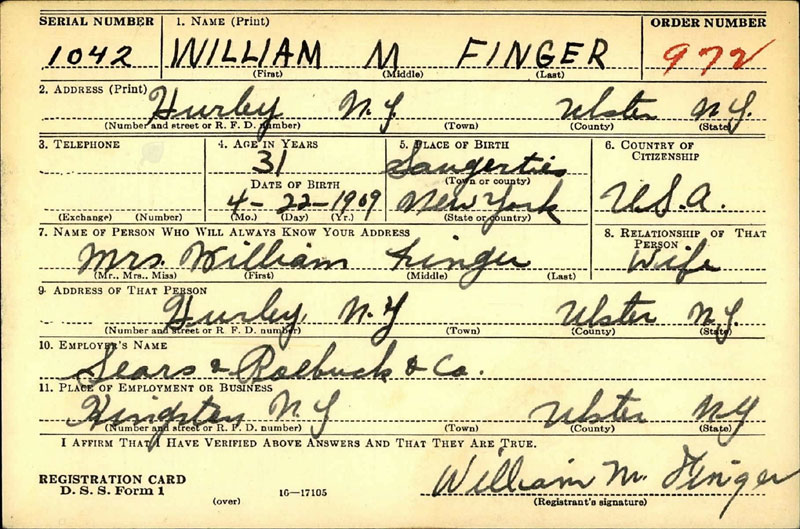 SERIAL NUMBER 1. NAME (Print) ORDER NUMBER
1042 WILLIAM M FINGER 972
(First) (Middle) (Last)
2. ADDRESS (Print) Hurley N.Y. Ulster N.Y.
(Number and street or R. F. D. number) (Town) (County) (State)
3. TELEPHONE 4. AGE IN YEARS 5. PLACE OF BIRTH 6. COUNTRY OF CITIZENSHIP
31 Saugerties
DATE OF BIRTH (Town or county)
4-22-1909 New York U.S.A.
(Exchange) (Number) (Mo.) (Day) (Yr.) (State or country)
7. NAME OF PERSON WHO WILL ALWAYS KNOW YOUR ADDRESS 8. RELATIONSHIP OF THAT PERSON
Mrs. William Finger Wife
(Mr., Mrs., Miss) (First) (Middle) (Last)
9. ADDRESS OF THAT PERSON
Hurley, N.Y Ulster N.Y.
(Number and street or R. F. D. number) (Town) (County) (State)
10. EMPLOYER'S NAME
Sears & Roebuck & Co.
11. PLACE OF EMPLOYMENT OR BUSINESS
Kingston N.Y Ulster N.Y
(Number and street or R. F. D. number) (Town) (County) (State)
I AFFIRM THAT I HAVE VERIFIED ABOVE ANSWERS AND THAT THEY ARE TRUE.
William M. Finger
REGISTRATION CARD
D. S. S. Form 1 (over) 16—17105 (Registrant's signature)